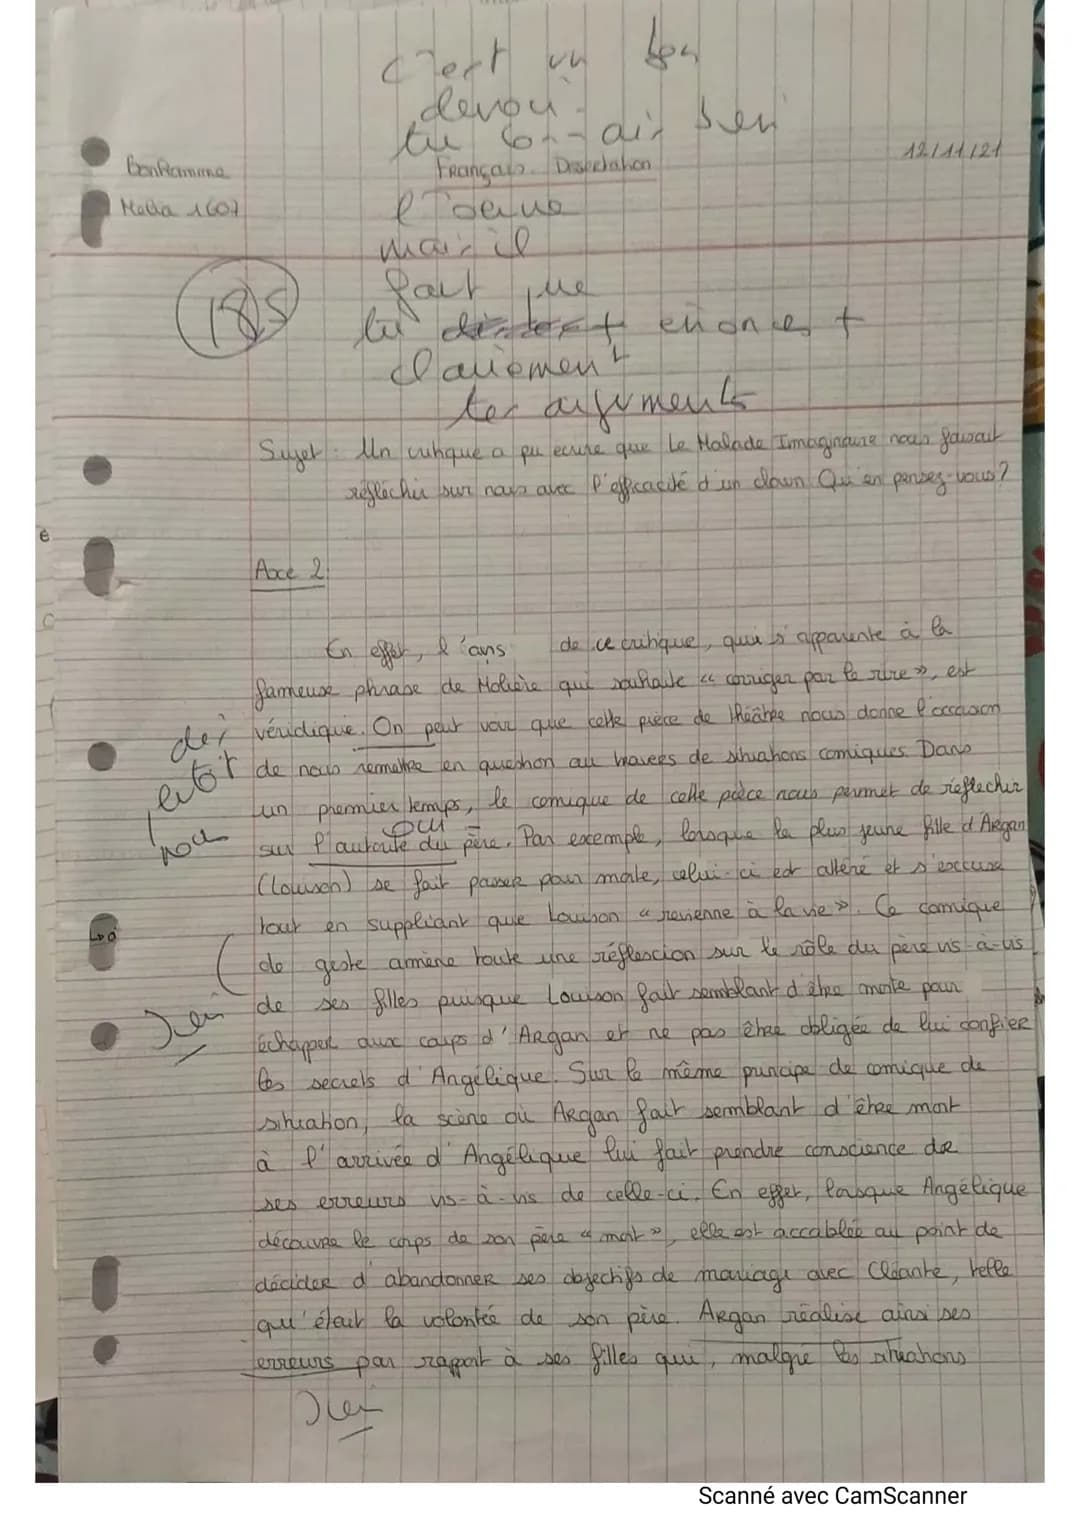 c'est un bon
devoir
tu connais bien
12/11/21
Français Dissertation
Bonhamme
Malia 1G07
l'oeuvre
mais il
faut que
18,5
tu énonces +
clairement
tes arguments
Sujet : Un critique a pu écrire que Le Malade Imaginaire nous faisait
réfléchir sur nous avec l'efficacité d'un clown. Qu'en pensez-vous ?
Axe 2
En effet, de ce critique, qui s'apparente à la
fameuse phrase de Molière qui souhaite « corriger par le rire », est
véridique. On peut voir que cette pièce de théâtre nous donne l'occasion
de nous remettre en question au travers de situations comiques. Dans
un premier temps, le comique de cette pièce nous permet de réflechir
oui
sur l'autorité du père. Par excemple, lorsque la plus jeune fille d'Argan
(Louison) se fait passer pour morte, celui-ci est altéré et s'excuse
tout en suppliant que Louison « revienne à la vie ». Ce comique
de geste amène toute une réflexion sur le rôle du père vis-à-vis
de ses filles puisque Louison fait semblant d'être morte pour
bien
échapper aux coups d'Argan et ne pas être obligée de lui confier
les secrets d'Angélique. Sur le même principe de comique de
situation, la scène où Argan fait semblant d'être mort
à l'arrivée d'Angélique lui fait prendre conscience de
ses erreurs vis-à-vis de celle-ci. En effet, lorsque Angélique
découvre le corps de son père « mort », elle est accablée au point de
décider d'abandonner ses objectifs de mariage avec Cléante, telle
qu'était la volontée de son père. Argan réalise ainsi ses
erreurs par rapport à ses filles qui, malgré les situations
bien
Scanné avec CamScanner